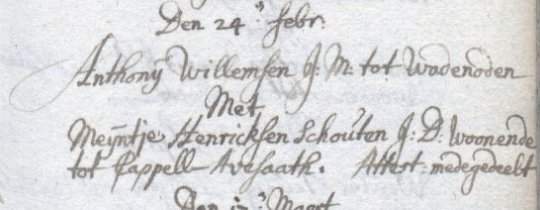 Den 24.' febr:
Anthonÿ Willemsen J: M: tot Wadenoden
Met
Meÿntje Henricksen Schouten J: D: woonende
tot Cappell Avesaath. Attest: medegedeelt
Den Maert